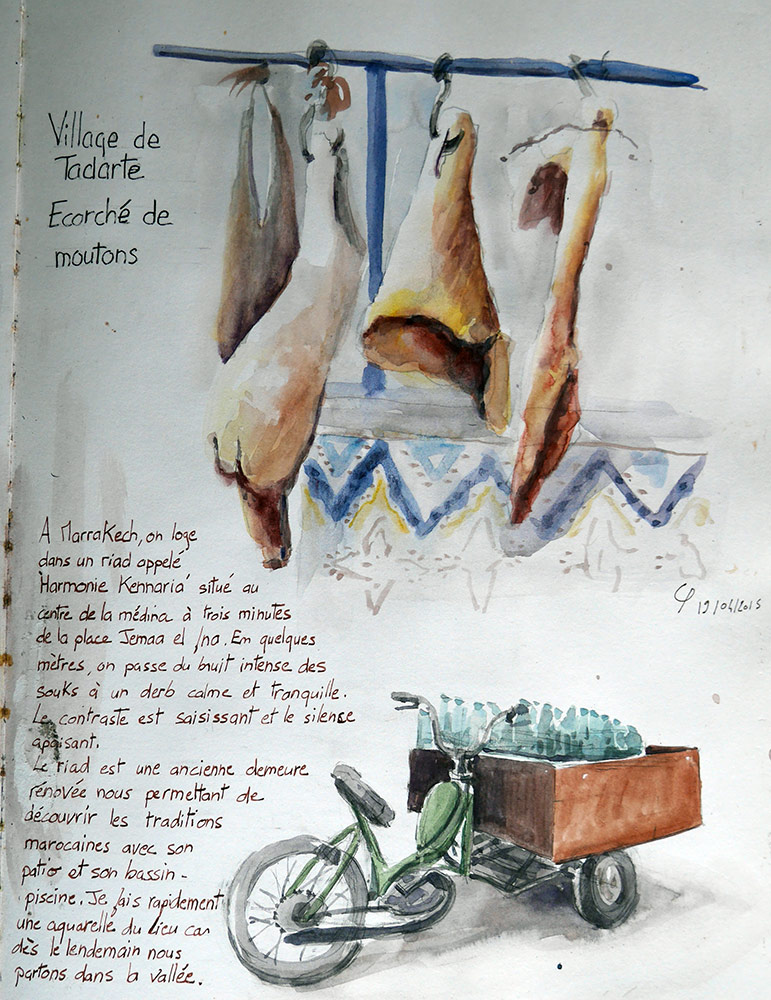 Village de
Tadarte
Ecorché de
moutons
A Marrakech, on loge
dans un riad appelé
'Harmonie Kennaria' situé au
centre de la médina à trois minutes
de la place Jemaa el fna. En quelques
mètres, on passe du bruit intense des
souks à un derb calme et tranquille.
Le contraste est saisissant et le silence
apaisant.
Le riad est une ancienne demeure
rénovée nous permettant de
découvrir les traditions
marocaines avec son
patio et son bassin-
piscine. Je fais rapidement
une aquarelle du lieu car
dès le lendemain nous
partons dans la vallée.
19/04/2015